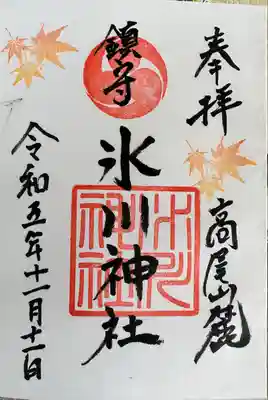 奉拝
高尾山麓
鎮守
氷川神社
氷川神社
令和五年十一月十一日